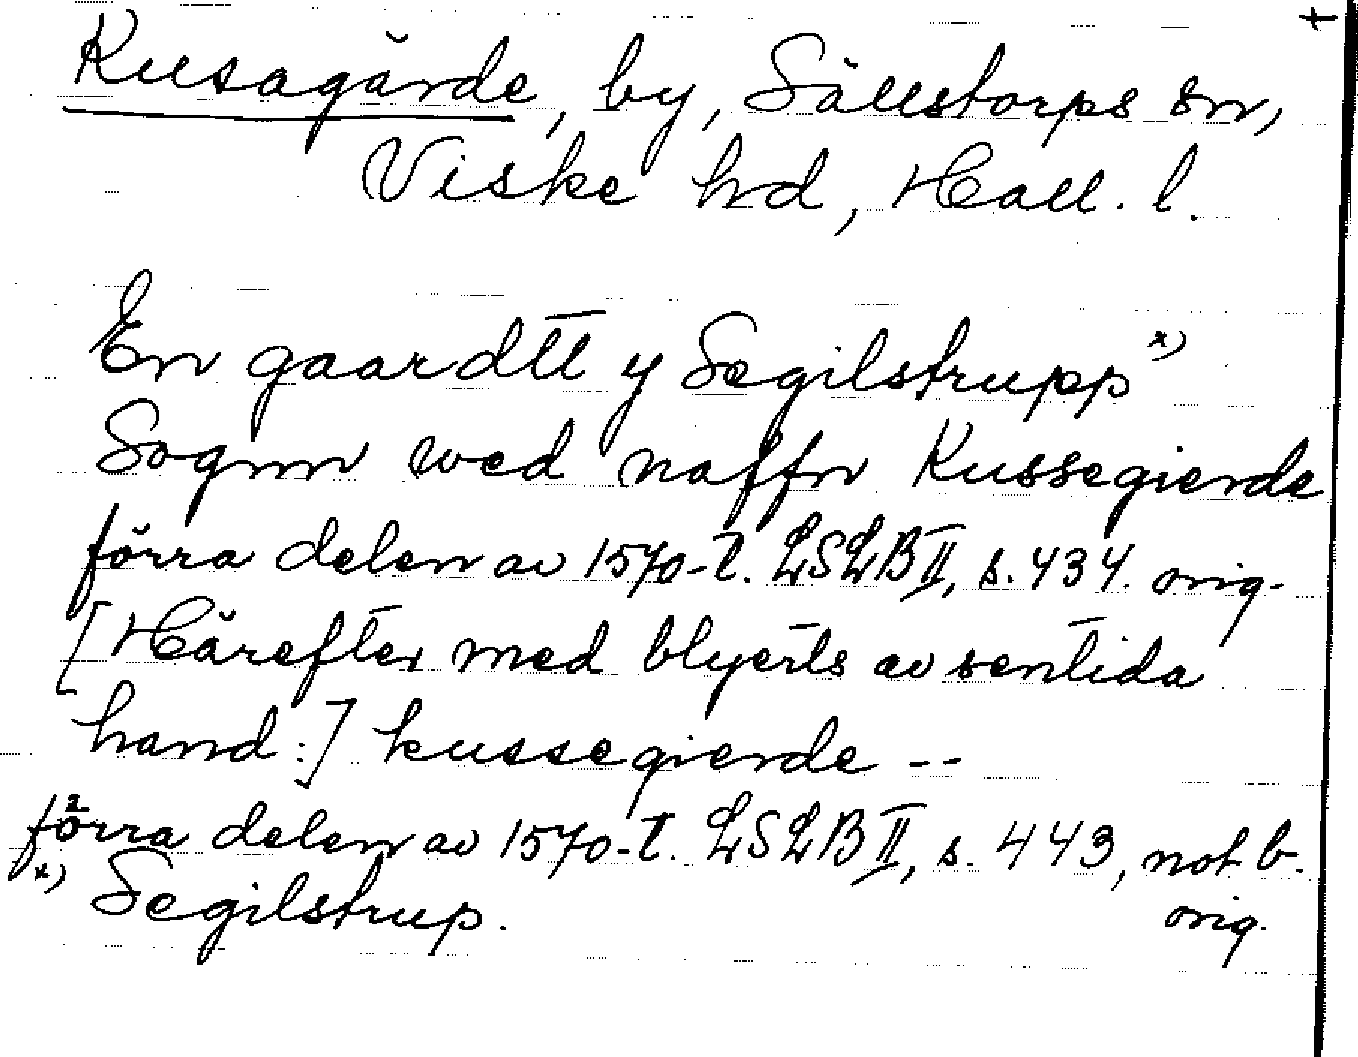 t
Kusagärde, by, Sällstorps sn,
Viske hd, Hall. l.
En gaardtt y Segilstrupp x)
Sognn wed naffn Kussegierde
förra delen av 1570-t. LSLB II, s. 434. orig.
[Härefter med blyerts av sentida
hand:] kussegierde --
förra delen av 1570-t. LSLB II, s. 443, not b.
orig.
x) Segilstrup.